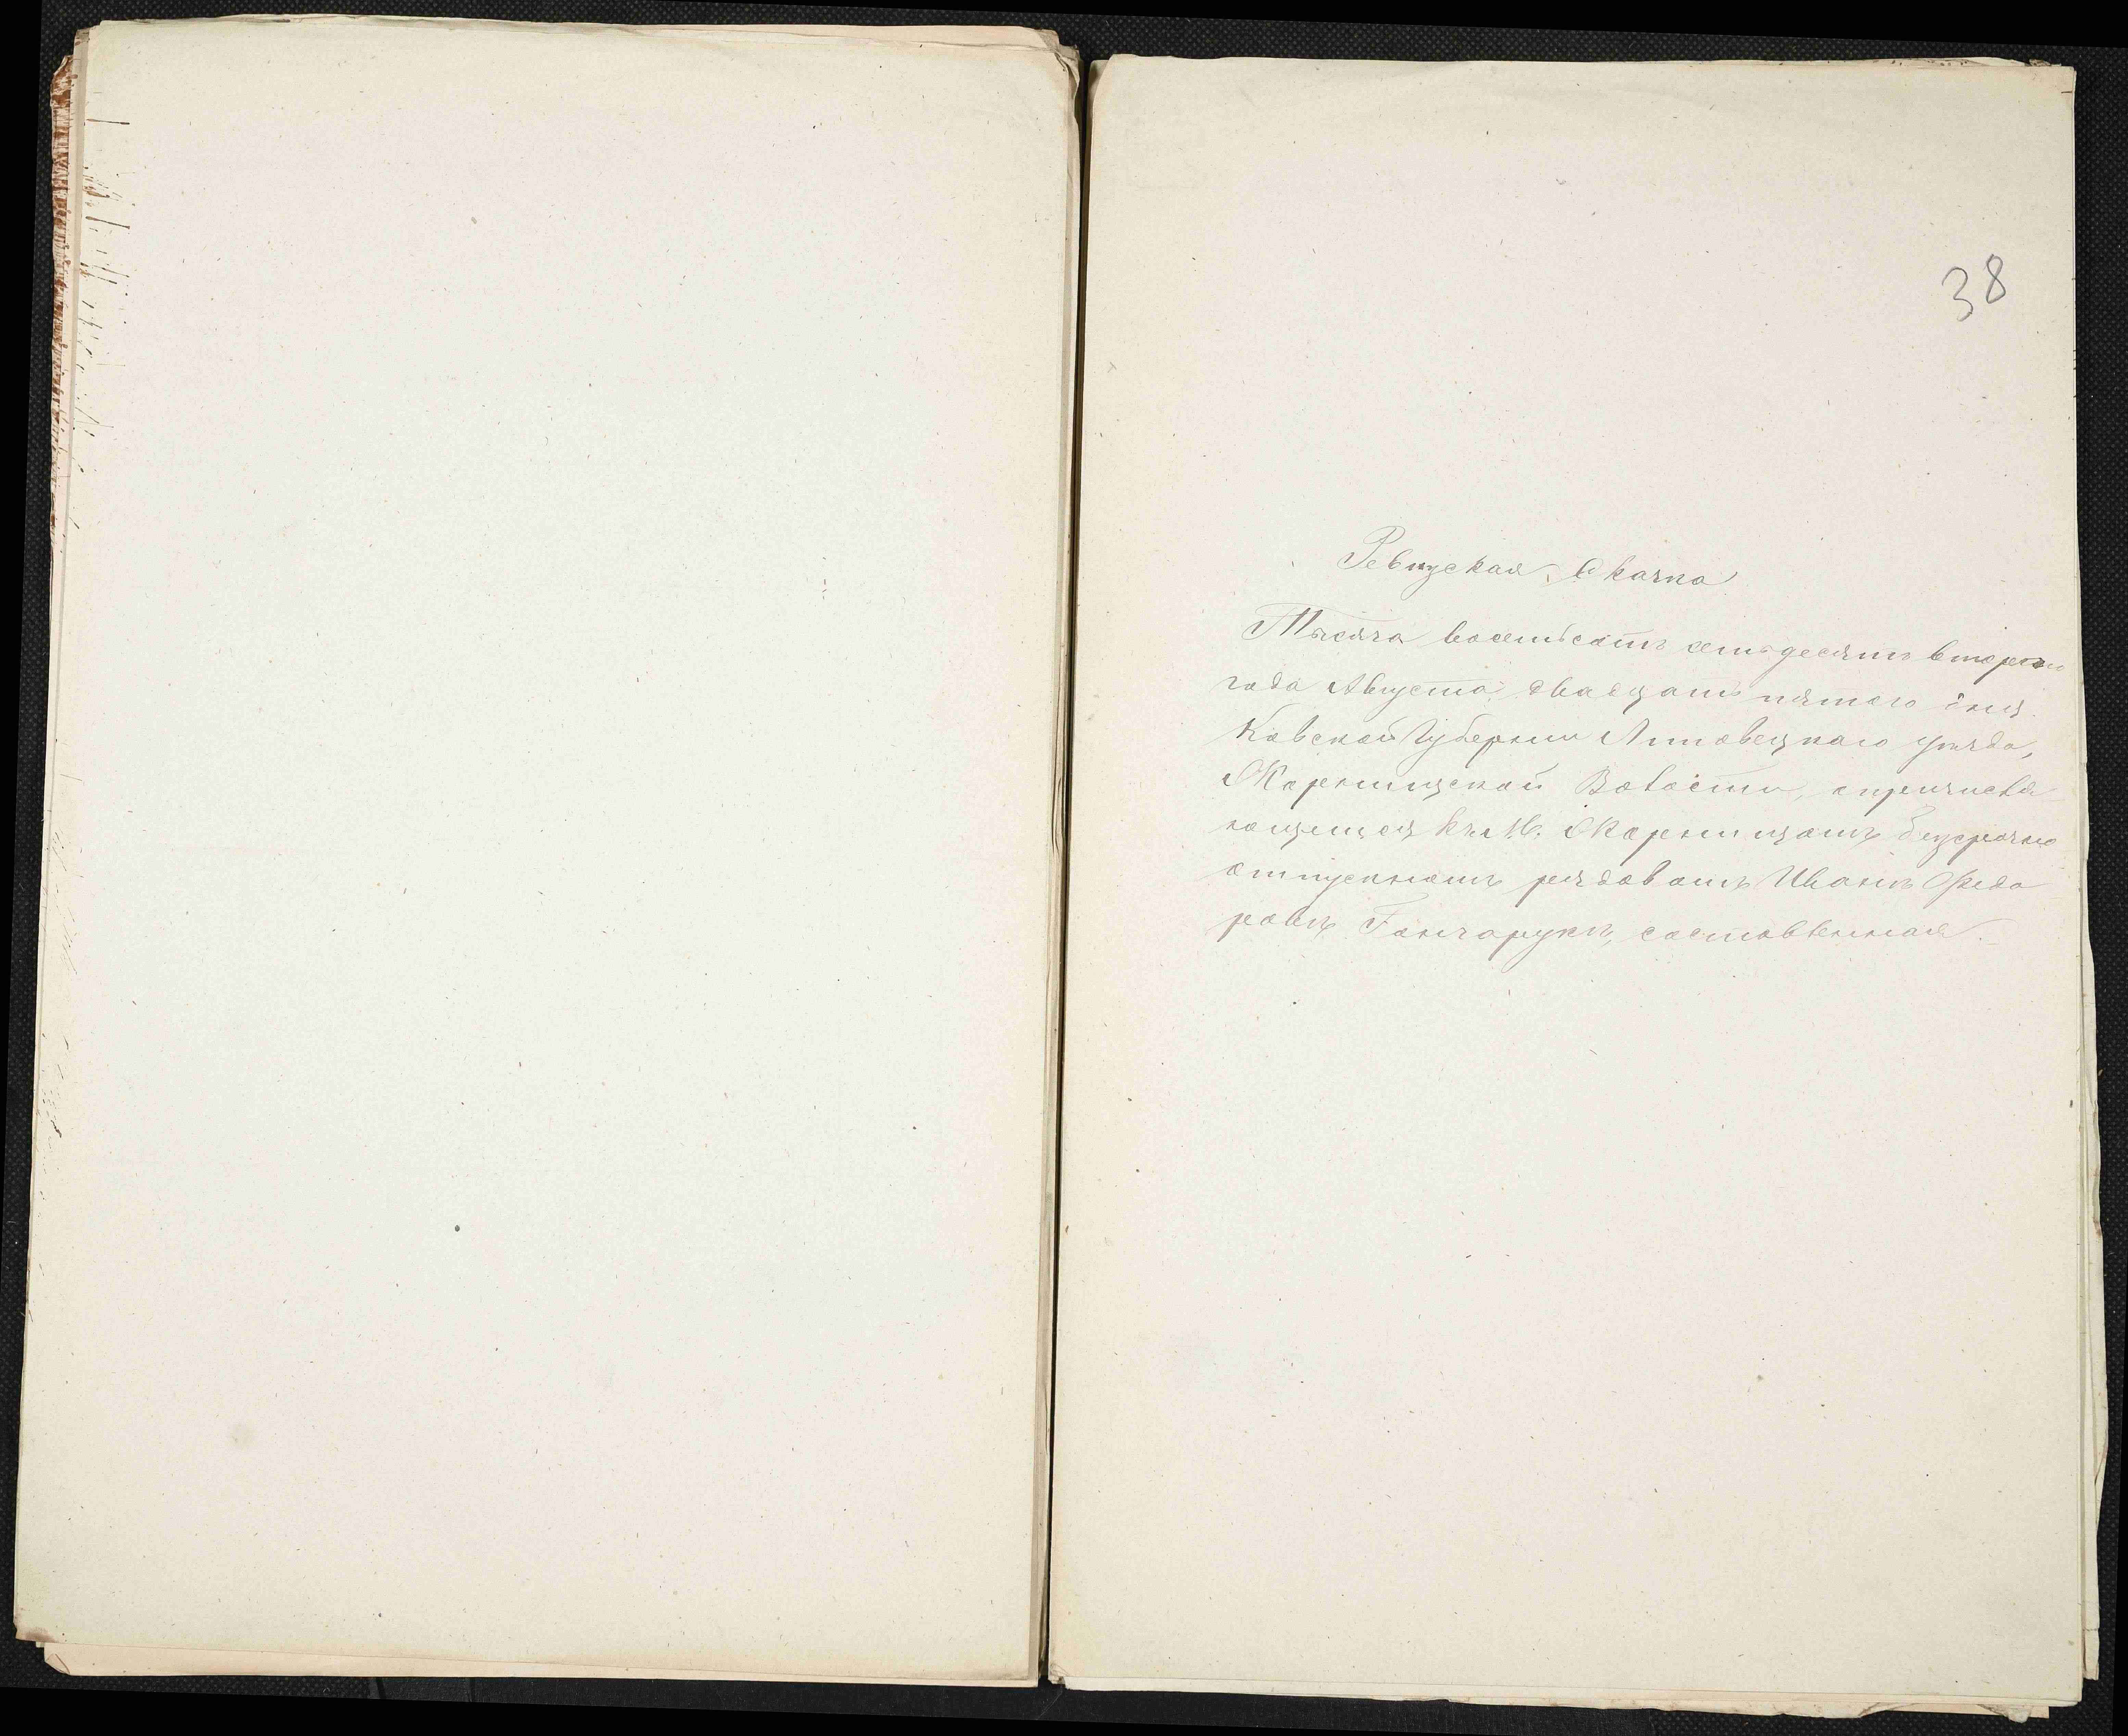 38
Ревизская Сказка
Тысяча восемьсотъ семьдесятъ второго
года Августа двадцать пятого дня
Ковской Губернии Липовецкаго уѣзда,
Жорнищской Волости, о причисля
ющемся къ М. Жорнищамъ безсрочно
отпускномъ рядовомъ Иванѣ Федо
ровѣ Гончарукѣ, составленная.